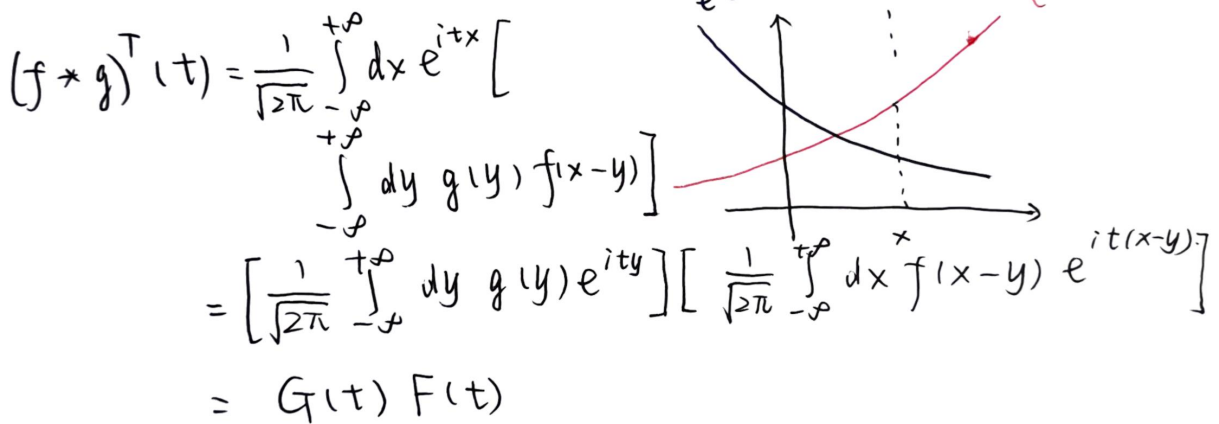 (f * g)^T (t) = 1/√2π ∫_{-∞}^{+∞} dx e^{itx} [
∫_{-∞}^{+∞} dy g(y) f(x-y) ]
x
= [ 1/√2π ∫_{-∞}^{+∞} dy g(y) e^{ity} ] [ 1/√2π ∫_{-∞}^{+∞} dx f(x-y) e^{it(x-y)} ]
= G(t) F(t)